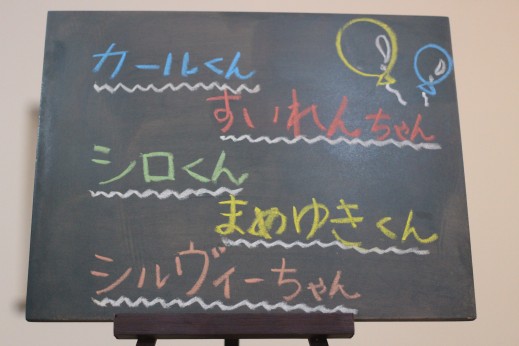 カールくん
すいれんちゃん
シロくん
まめゆきくん
シルヴィーちゃん